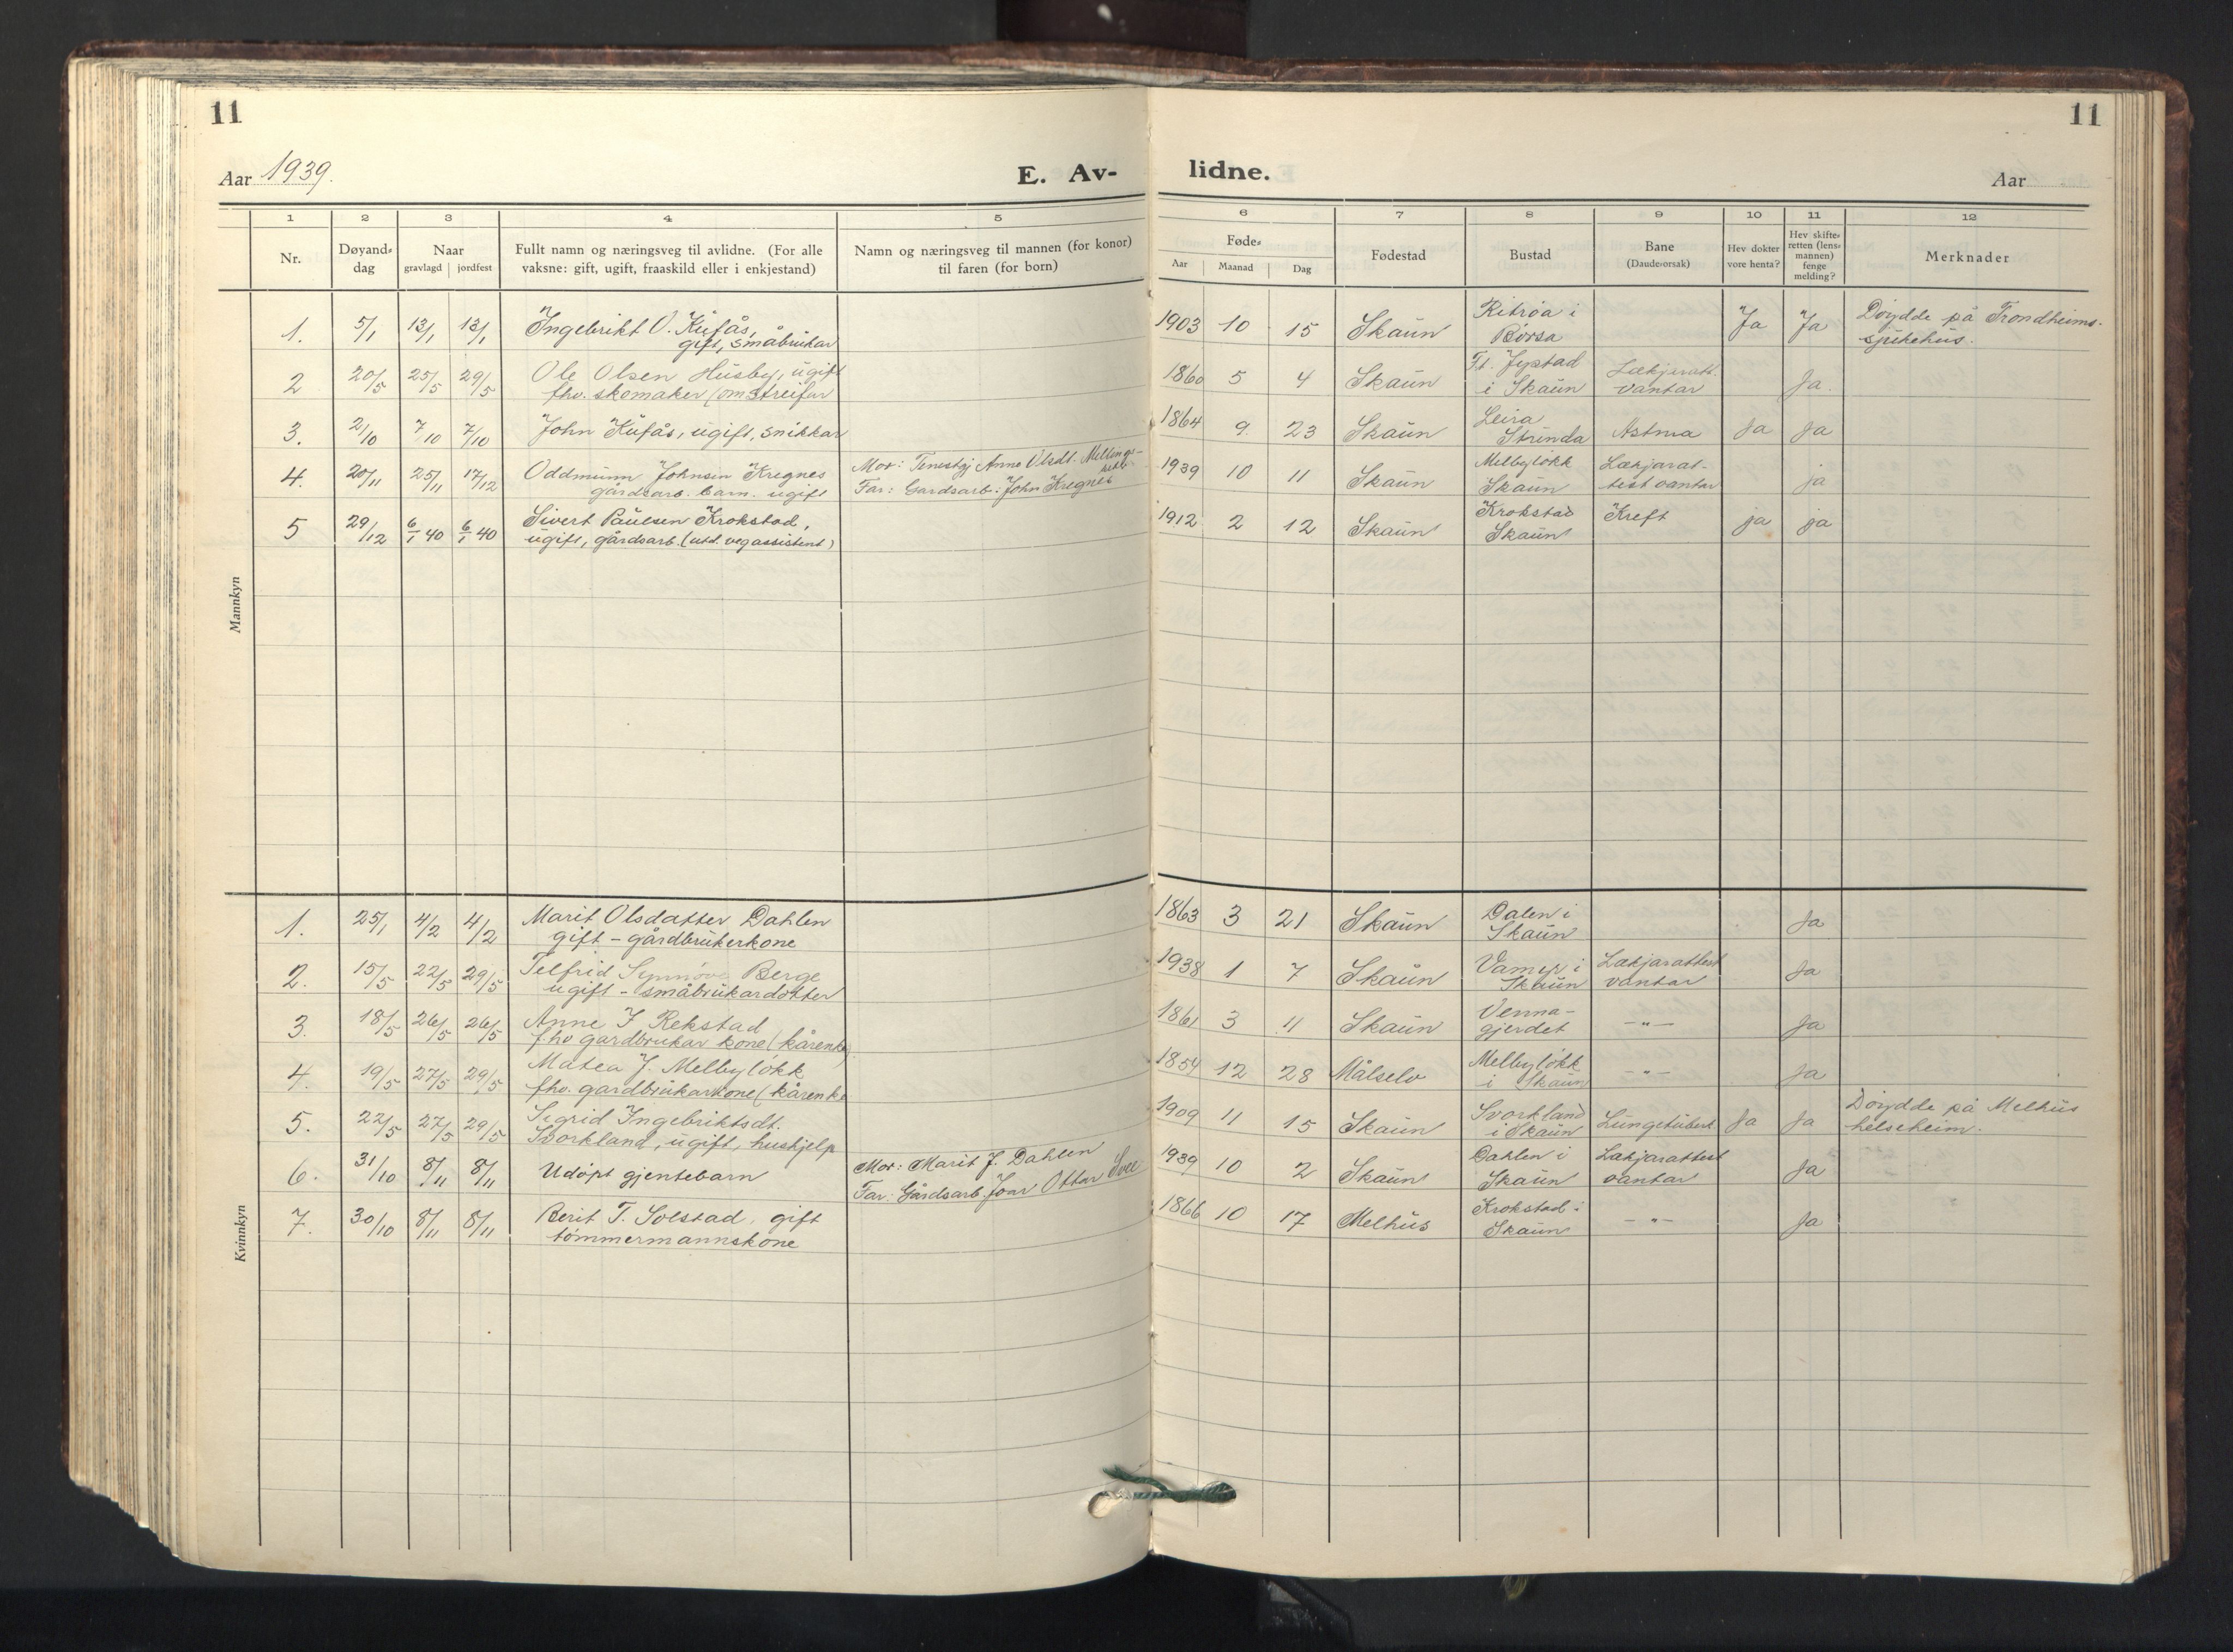 11
11
Aar 1939.
E. Av-
lidne.
Aar
1 2 3 4 5 6 7 8 9 10 11 12
Nr.
Døyand-
dag
Naar
gravlagd jordfest
Fullt namn og næringsveg til avlidne. (For alle
vaksne: gift, ugift, fraaskild eller i enkjestand)
Namn og næringsveg til mannen (for konor)
til faren (for born)
Føde-
Aar Maanad Dag
Fødestad
Bustad
Bane
(Daudeorsak)
Hev dokter
vore henta?
Hev skifte-
retten (lens-
mannen)
fenge
melding?
Merknader
Mannkyn
1. 5/1 13/1 13/1 Ingebrikt O. Kufås, 1903 10 15 Skaun Ritrøa i Ja Ja Døydde på Trondheims-
gift, småbrukar Børsa sjukehus.
2 20/5 25/5 29/5 Ole Olsen Husby, ugift 1860 5 4 Skaun Ft. Jystad Lækjaratt. Ja.
fhv. skomaker (omstreifar i Skaun vantar
3. 2/10 7/10 7/10 John Kufås, ugift, snikkar 1864 9 23 Skaun Leira Astma Ja Ja
Strinda
4. 20/11 25/11 17/12 Oddmunn Johnsen Kregnes Mor: Tenestgj Anna Olsdt. Mellings- 1939 10 11 Skaun Melbyløkk Lækjarat- ja
gårdsarb. barn. ugift Far: Gardsarb: John Kregnes Skaun test vantar
5 29/12 6/1 40 6/1 40 Sivert Paulsen Krokstad, 1912 2 12 Skaun Krokstad Kreft ja ja
ugift, gårdsarb. (utd. vegassistent) Skaun
Kvinnkyn
1. 25/1 4/2 4/2 Marit Olsdatter Dahlen 1863 3 21 Skaun Dalen i Ja
gift - gårdbrukerkone Skaun
2. 15/5 22/5 29/5 Telfrid Synnøve Berge 1938 1 7 Skaun i Lækjarattest Ja
ugift - småbrukardotter Skaun vantar
3. 18/5 26/5 26/5 Anne J Rekstad 1861 3 11 Skaun Venna- -"- Ja
fhv gardbrukar kone (kårenke) gjerdet
4. 19/5 27/5 29/5 Matea J. Melbyløkk 1854 12 28 Målselv Melbyløkk -"- Ja
fhv. gardbrukarkone (kårenke i Skaun
5. 22/5 27/5 29/5 Sigrid Ingebriktsdt. 1909 11 15 Skaun Svorkland Lungetuberk Ja Ja Døydde på Melhus
Svorkland, ugift, huskjelp i Skaun helseheim.
6. 31/10 8/11 8/11 Udøpt gjentebarn Mor: Marit J. Dahlen 1939 10 2 Skaun Dahlen i Lækjarattest Ja
Far: Gårdsarb. Joar Ottar Svee Skaun vantar
7. 30/10 8/11 8/11 Berit T. Solstad, gift 1866 10 17 Melhus Krokstad i -"- Ja
tømmermannskone Skaun